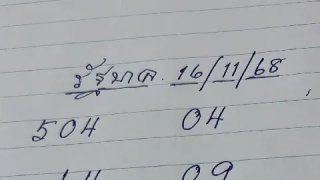 รัฐบาล 16/11/68
504 04
09